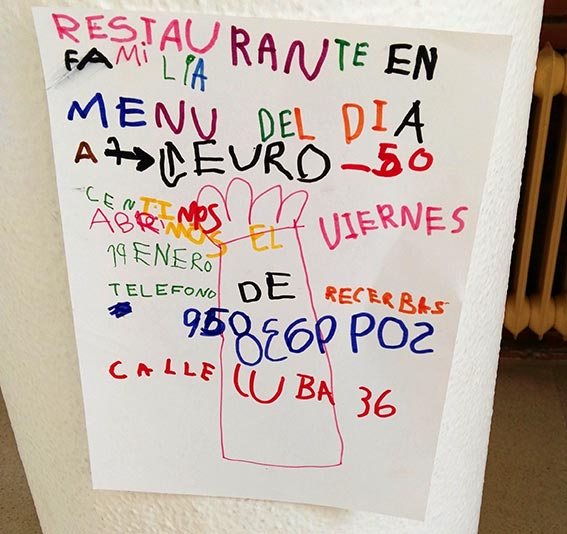 RESTAURANTE EN
FAMILIA
MENU DEL DIA
A 7 → EURO - 50
CENTIMOS
ABRIMOS EL VIERNES
19 ENERO
TELEFONO DE RECERBAS
CALLE CUBA 36